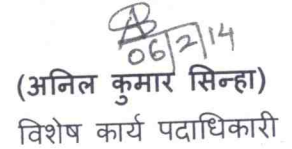 06/2/14
(अनिल कुमार सिन्हा)
विशेष कार्य पदाधिकारी